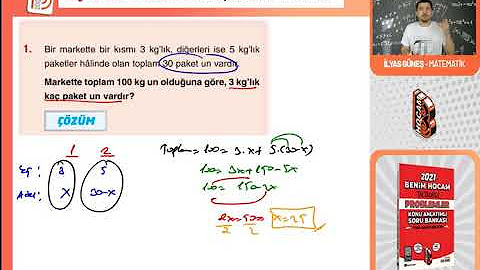 1. Bir markette bir kısmı 3 kg'lık, diğerleri ise 5 kg'lık
paketler hâlinde olan toplam 30 paket un vardır.
Markette toplam 100 kg un olduğuna göre, 3 kg'lık
kaç paket un vardır?
ÇÖZÜM
1 2
3 5
x 30-x
Toplam = 100 = 3.x + 5.(30-x)
100 = 3x + 150 - 5x
100 = 150 - 2x
2x = 50
2 2
x = 25
İLYAS GÜNEŞ - MATEMATİK
HOCAM
2021
BENİM HOCAM
PROBLEMLER
KONU ANLATIMLI
SORU BANKASI